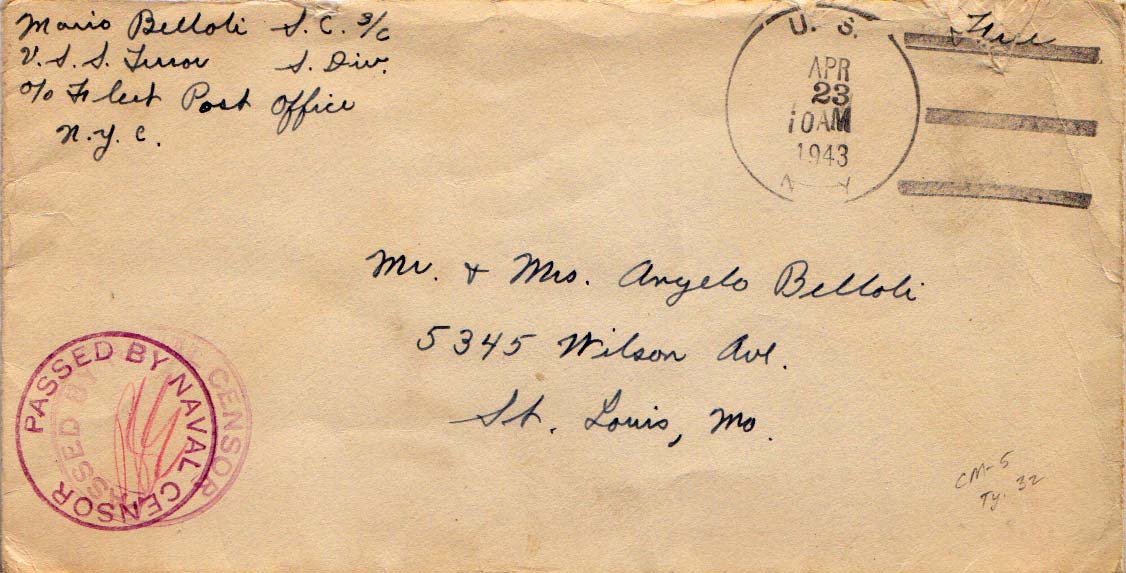 Mario Belloli S.C. 3/c
U.S.S. Terror S. Div.
c/o Fleet Post Office
N.Y.C.
Free
U. S.
APR
23
10AM
1943
N Y
Mr. + Mrs. Angelo Belloli
5345 Wilson Ave.
St. Louis, Mo.
PASSED BY NAVAL CENSOR
PASSED BY NAVAL CENSOR
CM-5
Ty. 32